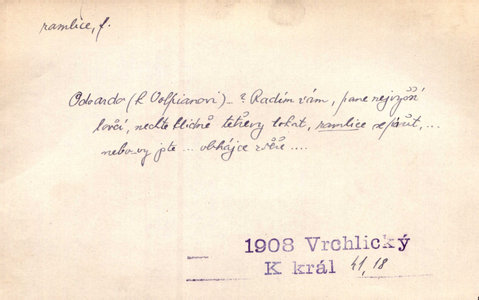 ramlice, f.
Odoardo (k Volpianovi) – ? Radím vám, pane nejvyšší
lovčí, nechte klidně tetřevy tokat, ramlice se pářit, ...
nebo vy jste ... obhájce zvěře ....
1908 Vrchlický
K král 41, 18